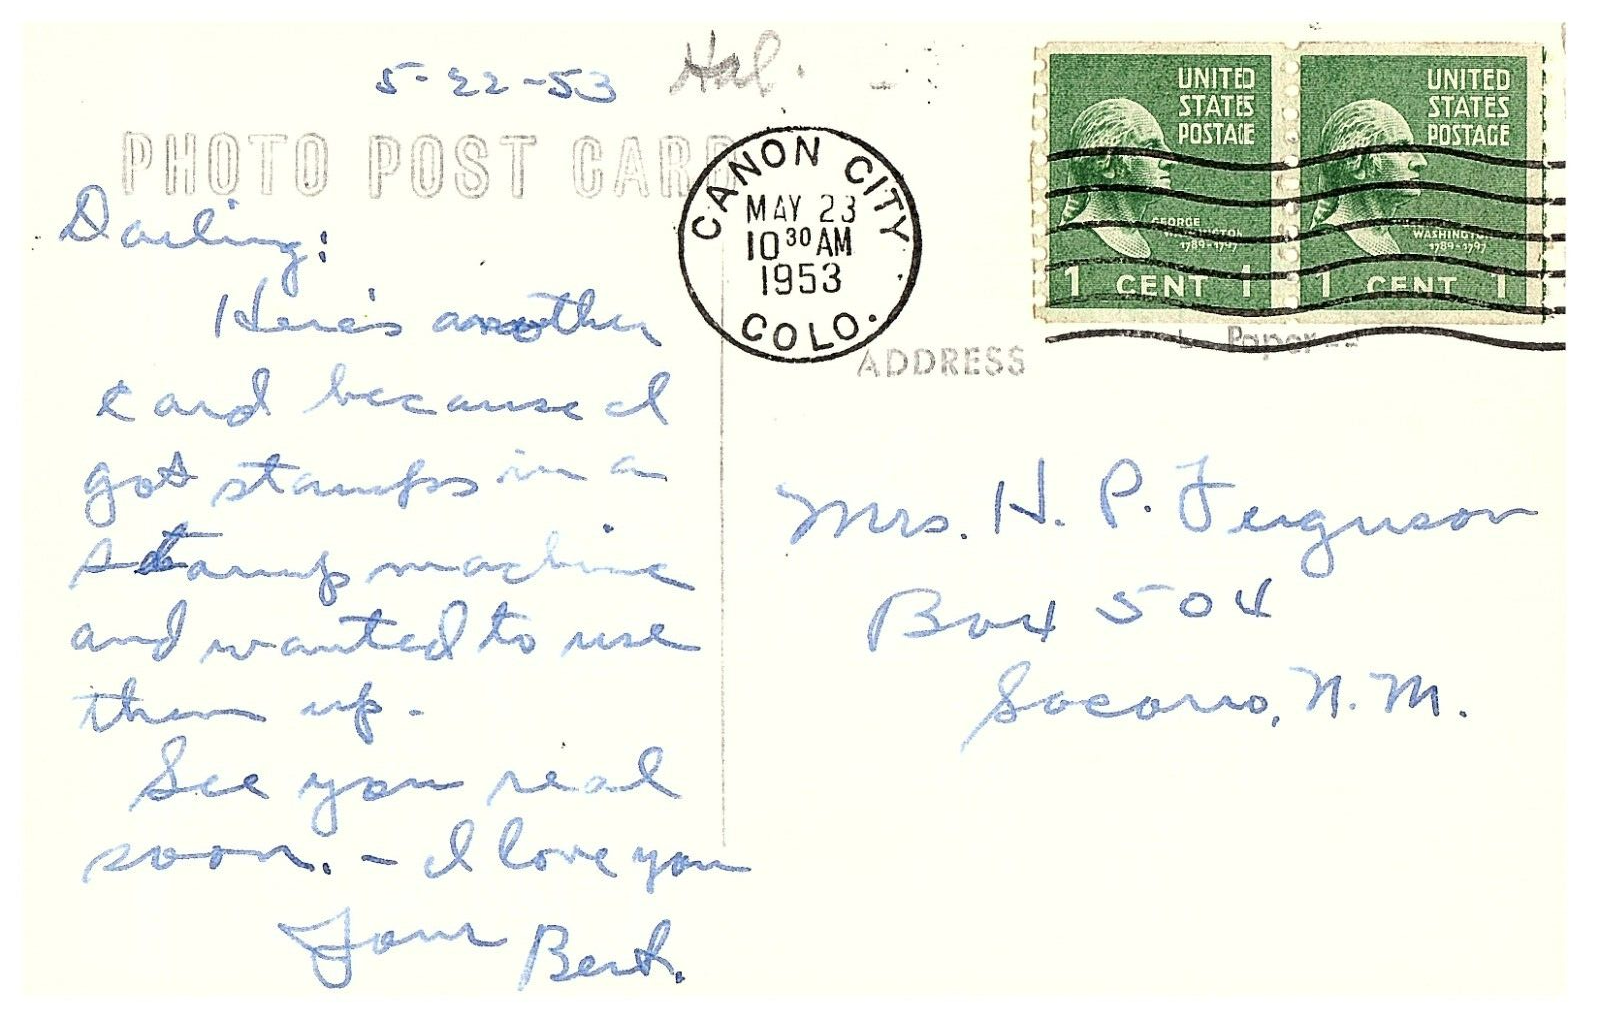 5-22-53
Hal.
PHOTO POST CARD
Darling:
Here's another
card because I
got stamps in a
stamp machine
and wanted to use
them up.
See you real
soon. - I love you
Your Bert.
CANON CITY
MAY 23
10 30 AM
1953
COLO.
UNITED
STATES
POSTAGE
GEORGE
WASHINGTON
1789-1797
1 CENT 1
UNITED
STATES
POSTAGE
WASHINGTON
1789-1797
1 CENT 1
ADDRESS
Paper
Mrs. H. P. Ferguson
Box 504
Socorro, N. M.